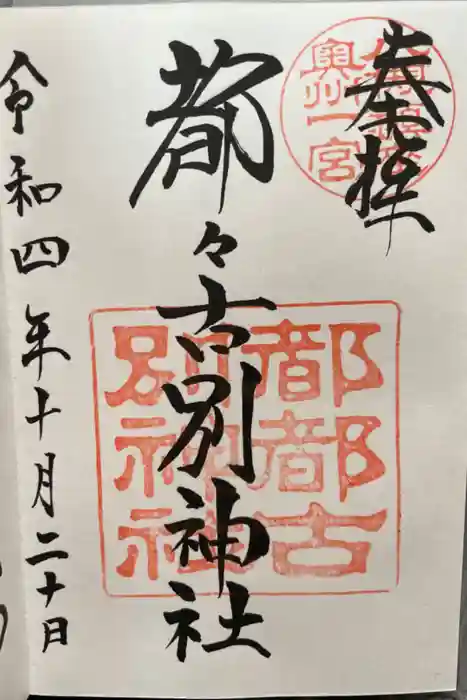 奉拝
奥州一宮
都々古別神社
都都古
別神社
令和四年十月二十日